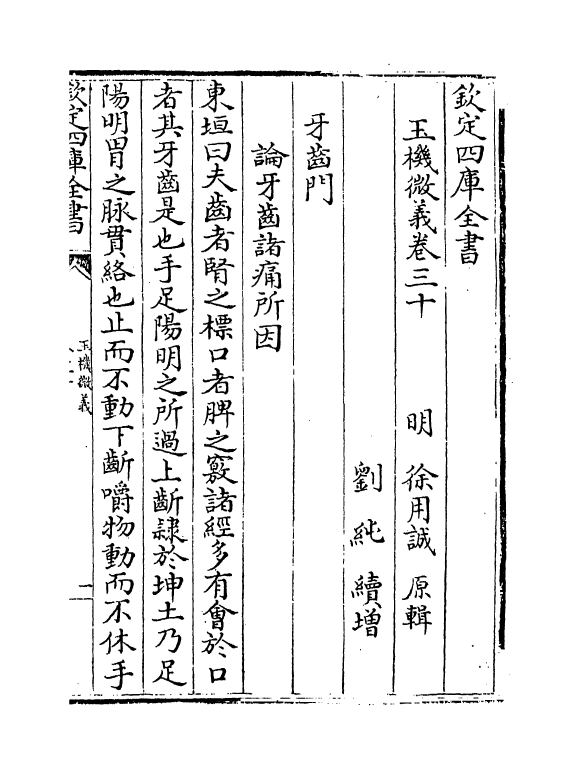 欽定四庫全書
玉機微義卷三十
明 徐用誠 原輯
劉純 續增
牙齒門
論牙齒諸痛所因
東垣曰夫齒者腎之標口者脾之竅諸經多有會於口
者其牙齒是也手足陽明之所過上齗隷於坤土乃足
陽明胃之脉貫絡也止而不動下齗嚼物動而不休手
欽定四庫全書
玉機微義
一